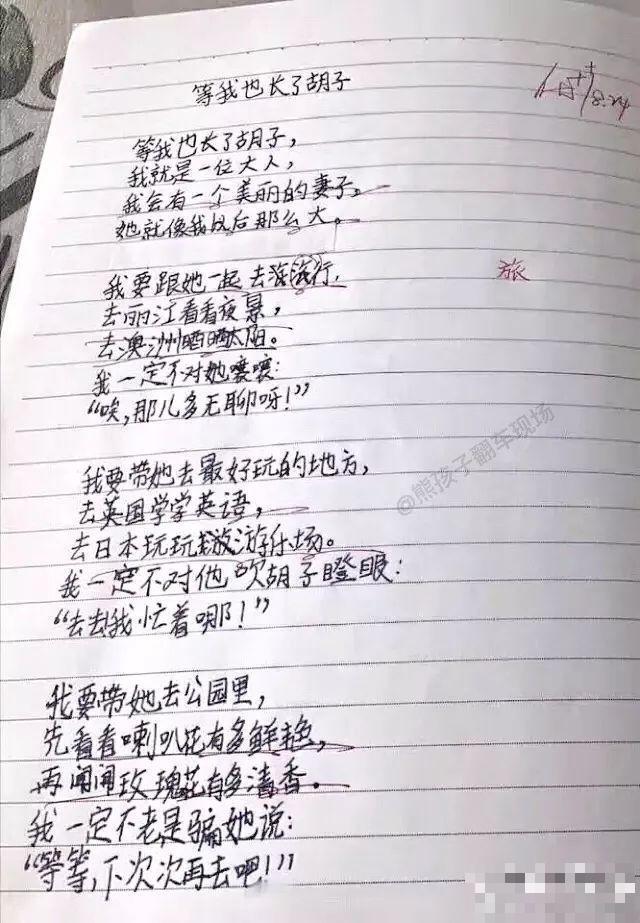 等我也长了胡子
8.24
等我也长了胡子，
我就是一位大人，
我会有一个美丽的妻子。
她就像我以后那么大。
我要跟她一起去旅行，
旅
去丽江看看夜景，
去澳洲晒晒太阳。
我一定不对她嚷嚷：
“唉，那儿多无聊呀！”
我要带她去最好玩的地方，
去英国学学英语，
去日本玩玩游乐场。
我一定不对他吹胡子瞪眼：
“去去我忙着哪！”
我要带她去公园里，
先看看喇叭花有多鲜艳，
再闻闻玫瑰花有多清香。
我一定不老是骗她说：
“等等，下次次再去吧！”
@熊孩子翻车现场